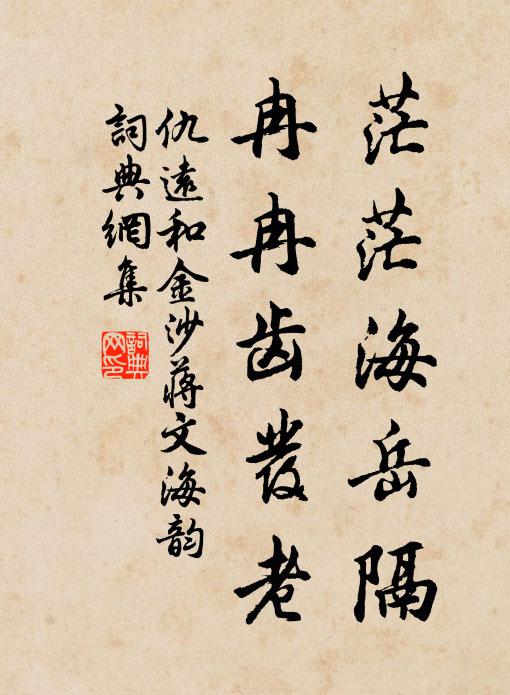 茫茫海岳隔
冉冉齿發老
仇遠和金沙蔣文海韵
詞典網集
詞典
网印